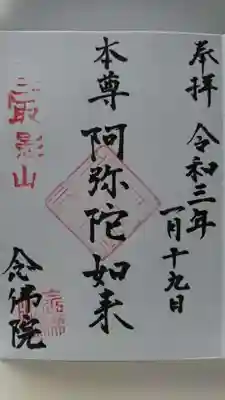 奉拝 令和三年
一月十九日
本尊 阿弥陀如来
最影山
念佛院